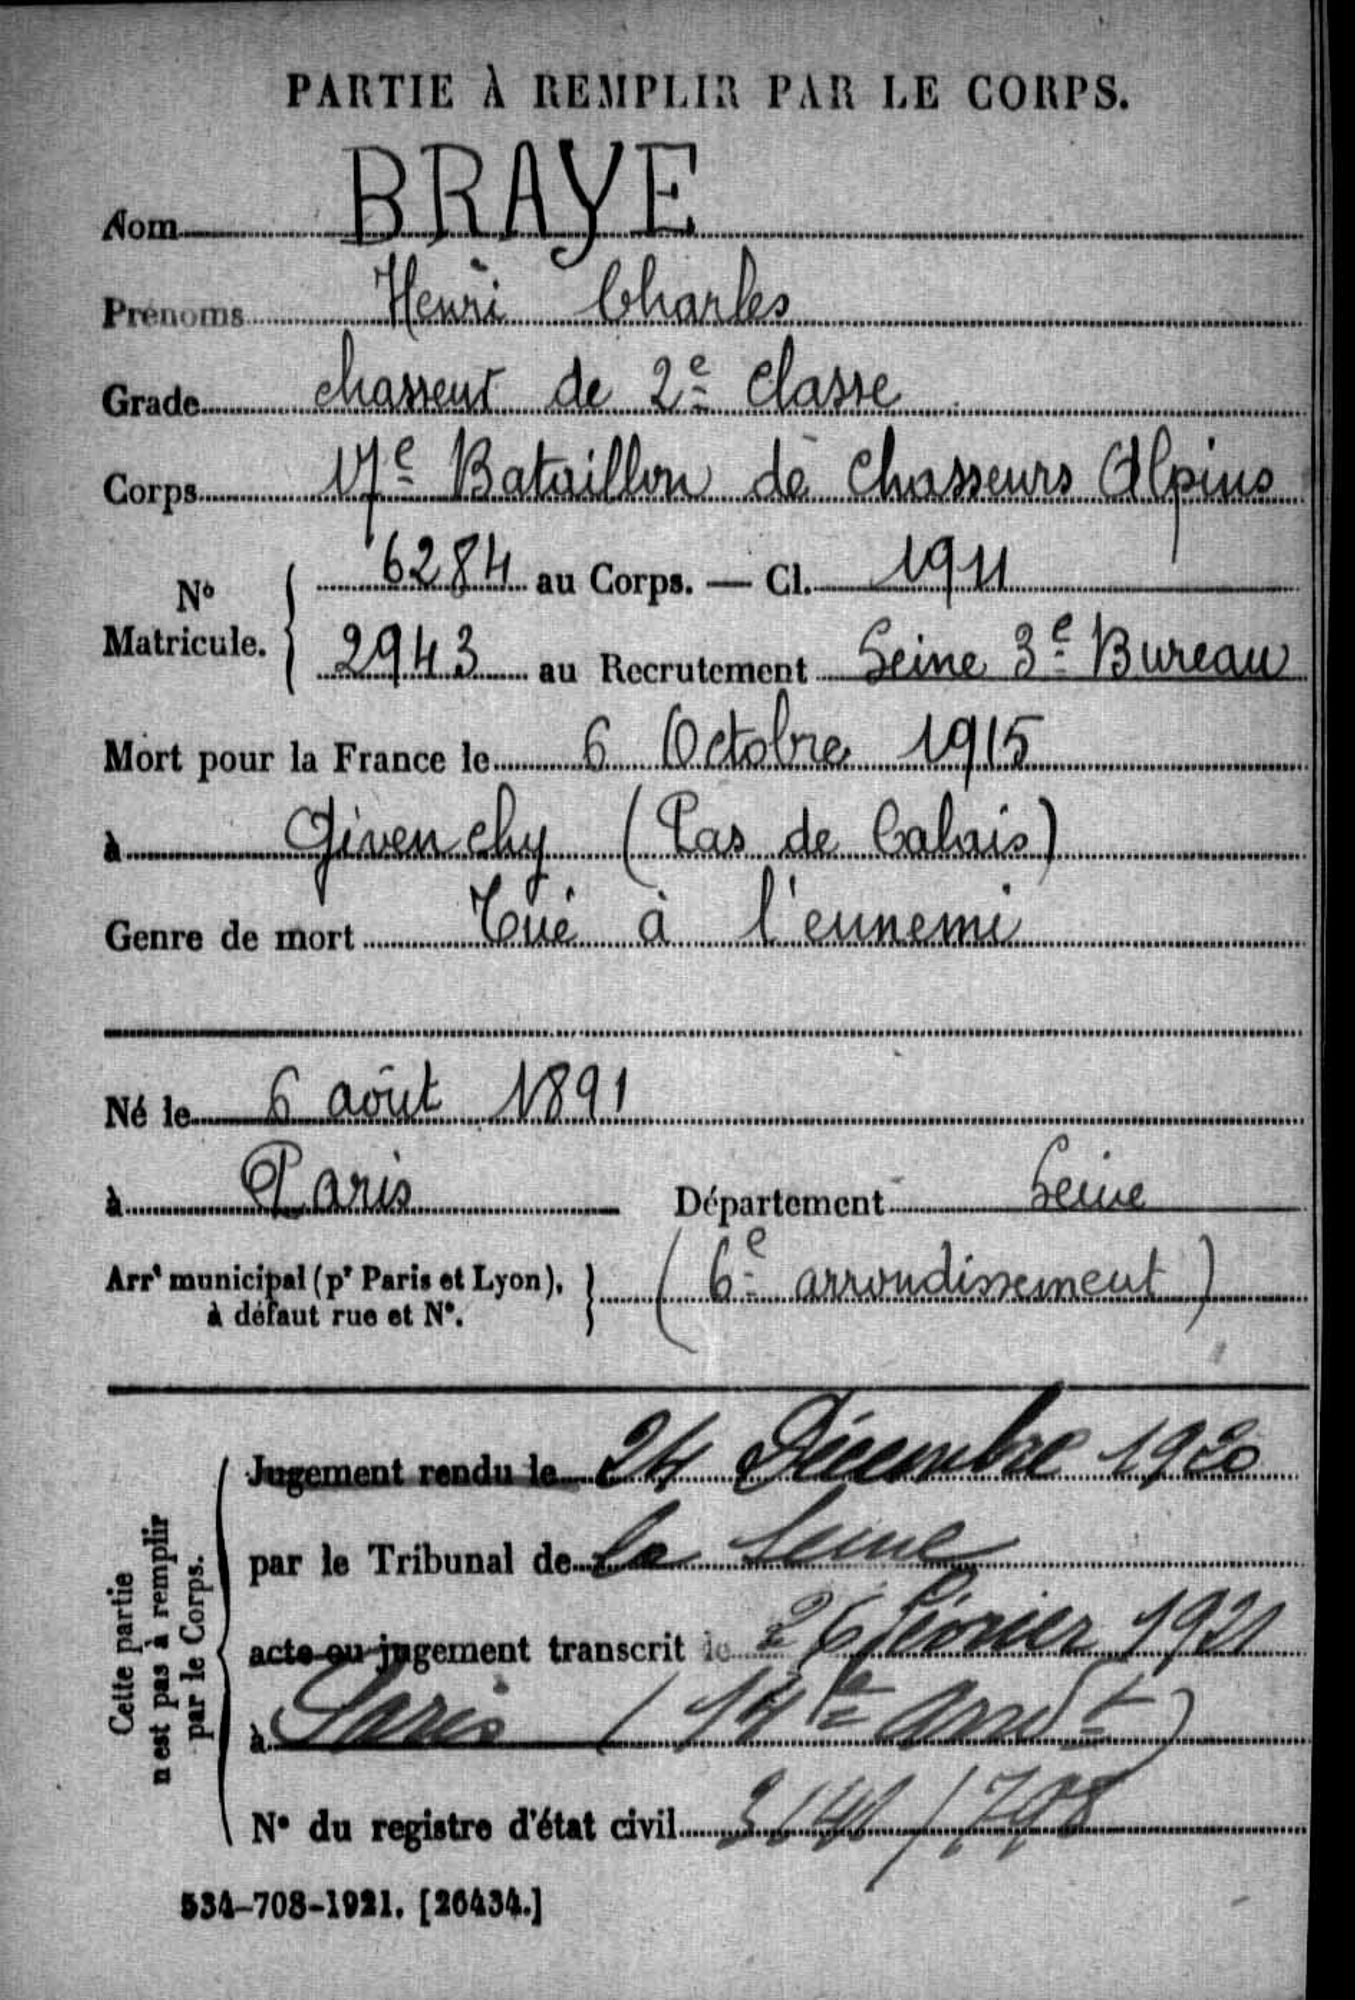 PARTIE À REMPLIR PAR LE CORPS.
Nom BRAYE
Prénoms Henri Charles
Grade chasseur de 2e classe
Corps 17e Bataillon de Chasseurs Alpins
No Matricule. 6284 au Corps. — Cl. 1911
2943 au Recrutement Seine 3e Bureau
Mort pour la France le 6 Octobre 1915
à Givenchy (Pas de Calais)
Genre de mort Tué à l'ennemi
Né le 6 août 1891
à Paris Département Seine
Arrt municipal (pr Paris et Lyon), à défaut rue et No. (6e arrondissement)
Cette partie n'est pas à remplir par le Corps.
Jugement rendu le 24 Décembre 1920
par le Tribunal de la Seine
acte ou jugement transcrit le 26 février 1921
à Paris (14e arrdt)
No du registre d'état civil
534-708-1921. [26434.]